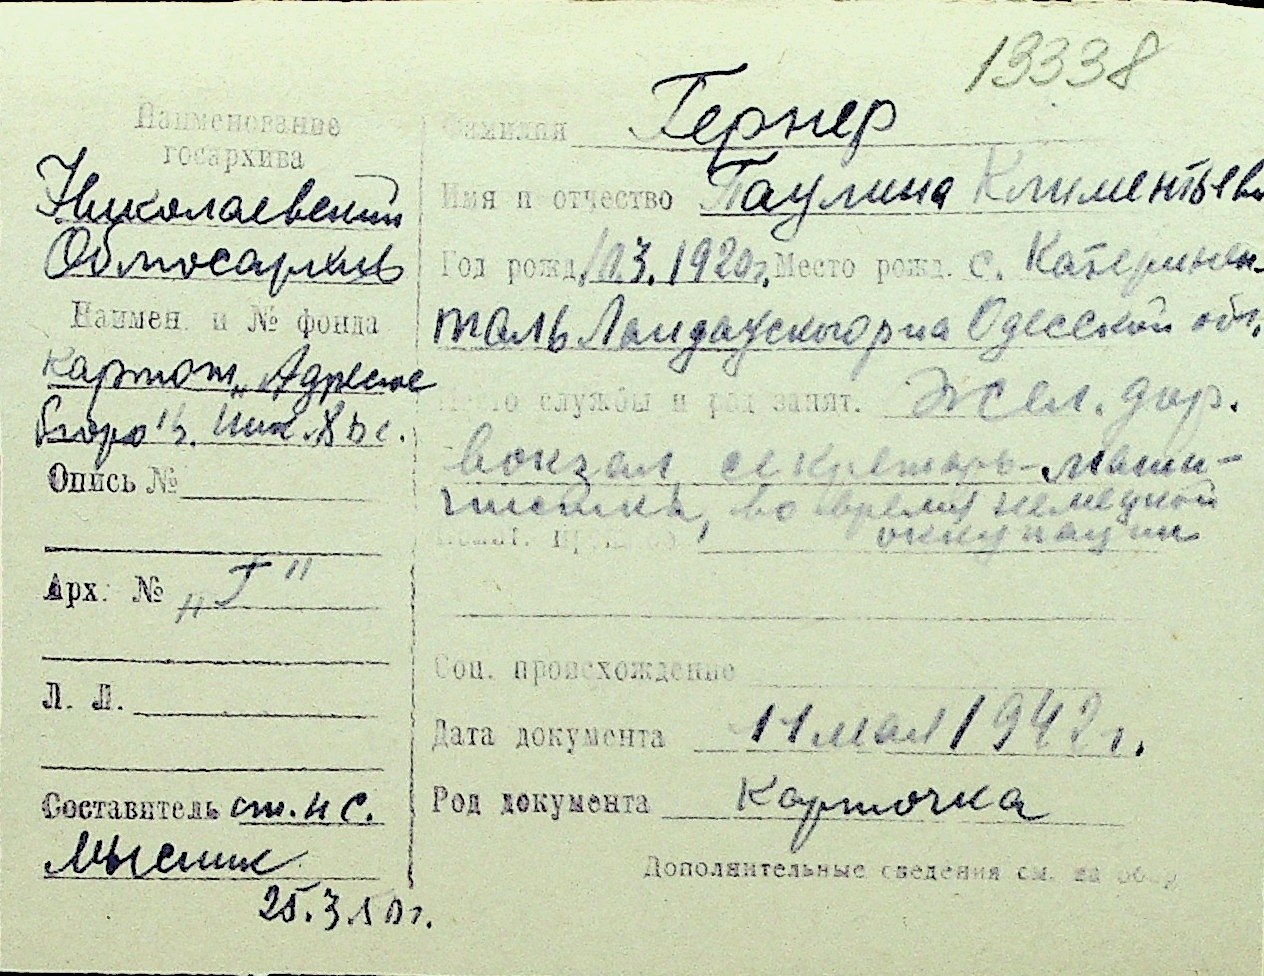 13338
Наименование
госархива
Николаевский
Облгосархив
Наимен. и № фонда
Картот. „Адресное
бюро"
Опись №
Арх. № „Г"
Л. Л.
Составитель ст. н с.
Мысник
25.3.50г.
Фамилия Гернер
Имя и отчество Паулина Климентьев
Год рожд. 10.3.1920г. Место рожд. с. Катеринен-
таль Ландауского р-на Одесской обл.
Место службы и род занят. Жел. дор.
вокзал, секретарь-маши-
нистка, во время немецкой
оккупации
Соц. происхождение
Дата документа 11 мая 1942 г.
Род документа Карточка
Дополнительные сведения см. на обор